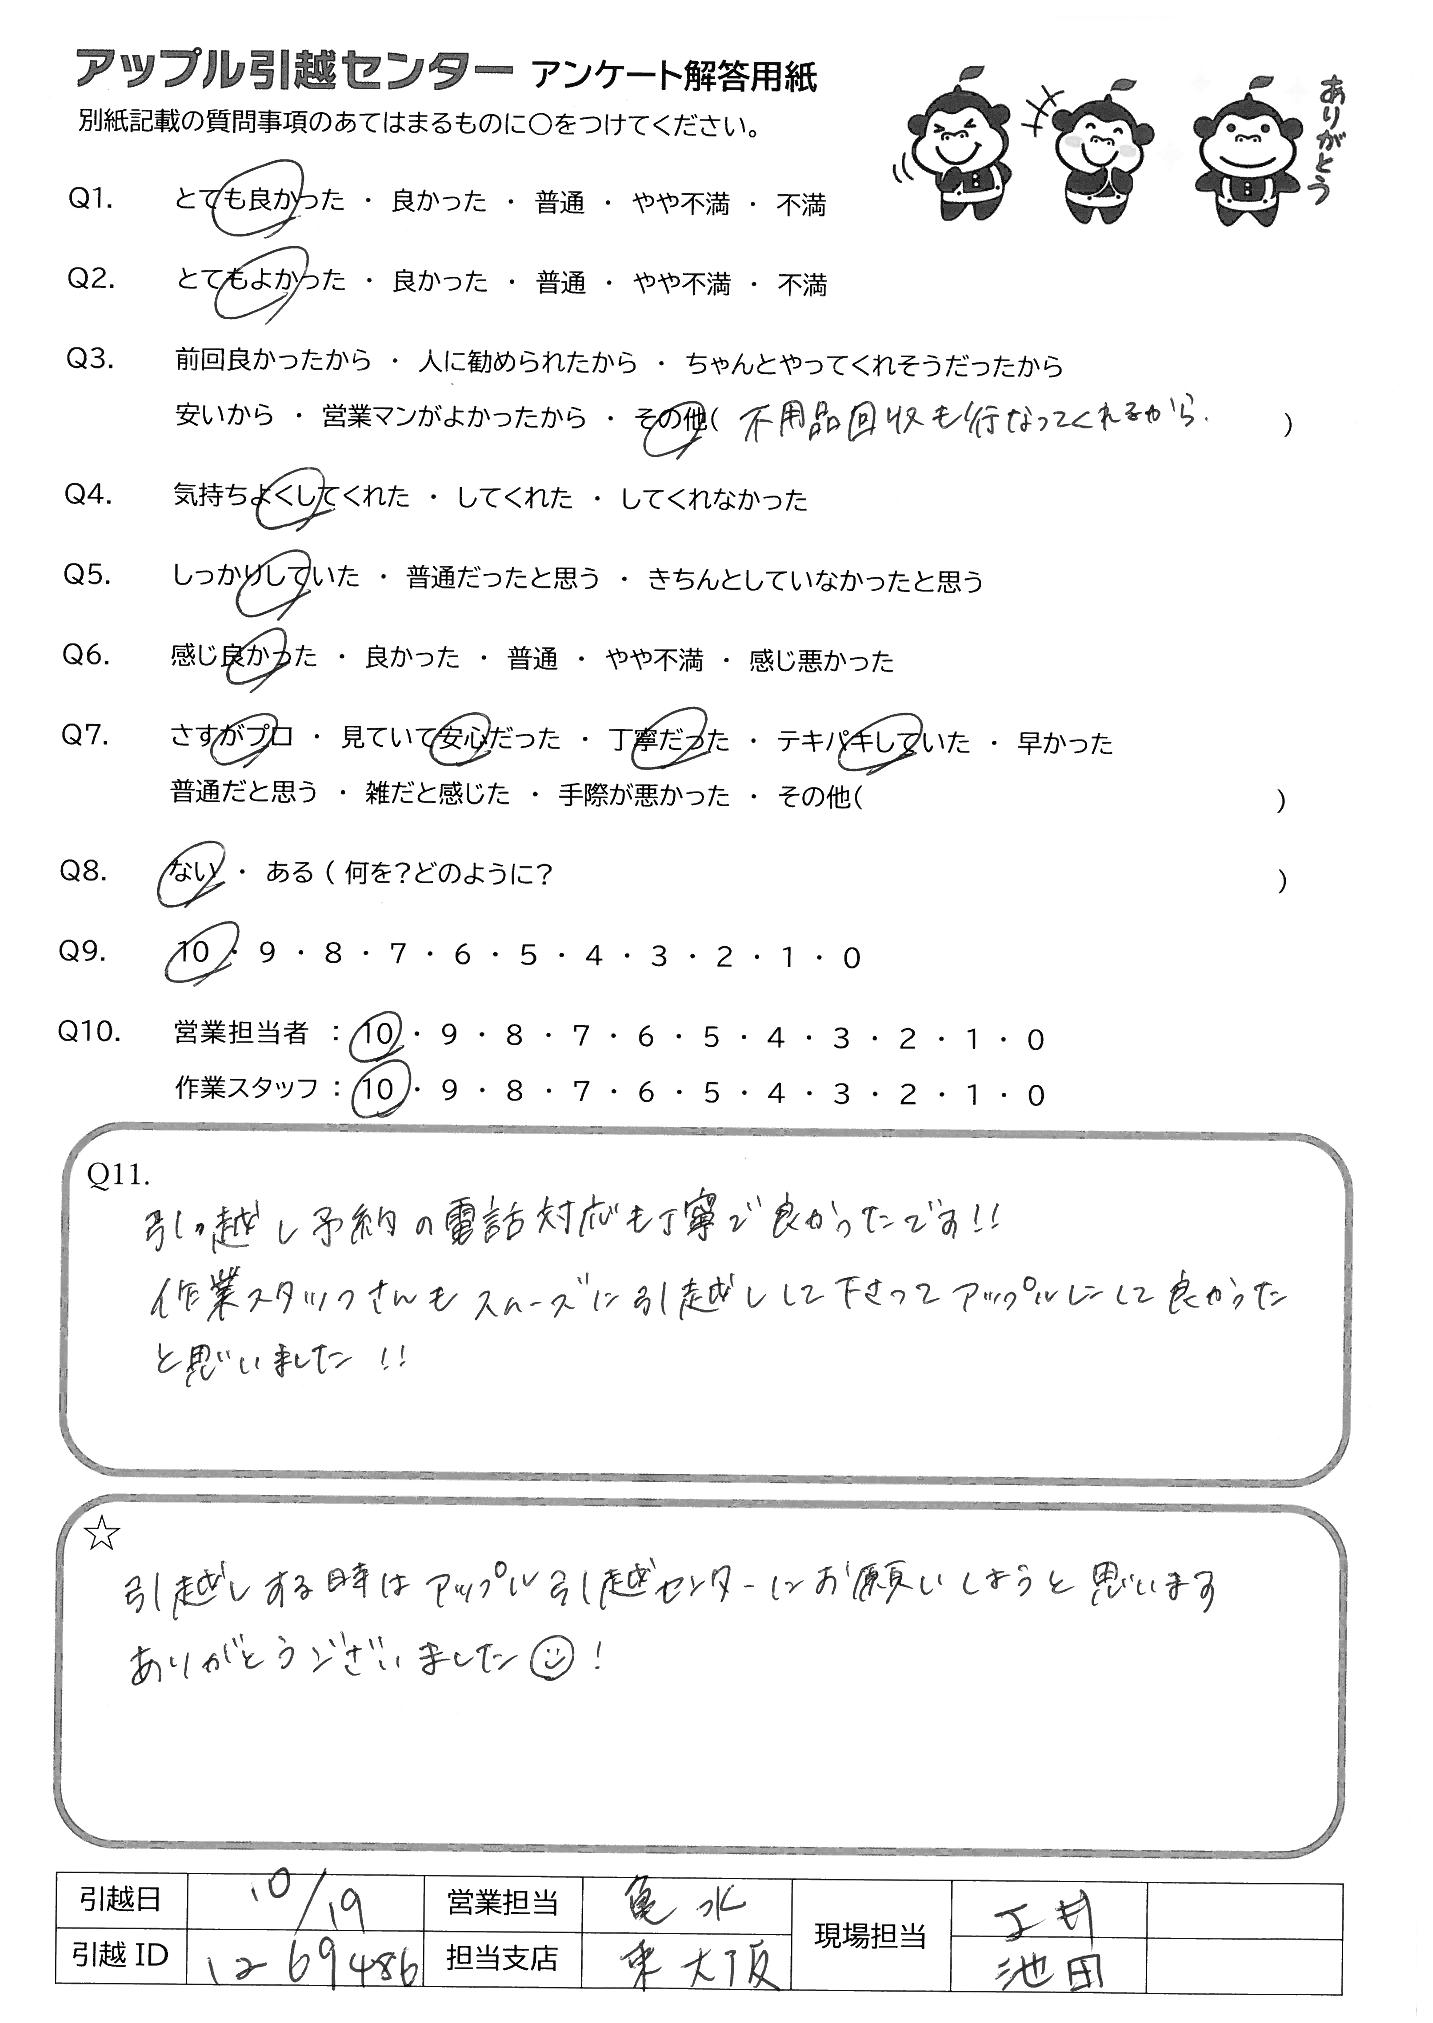 アップル引越センター アンケート解答用紙
ありがとう
別紙記載の質問事項のあてはまるものに○をつけてください。
Q1. とても良かった ・ 良かった ・ 普通 ・ やや不満 ・ 不満
Q2. とてもよかった ・ 良かった ・ 普通 ・ やや不満 ・ 不満
Q3. 前回良かったから ・ 人に勧められたから ・ ちゃんとやってくれそうだったから
安いから ・ 営業マンがよかったから ・ その他( 不用品回収も行なってくれるから. )
Q4. 気持ちよくしてくれた ・ してくれた ・ してくれなかった
Q5. しっかりしていた ・ 普通だったと思う ・ きちんとしていなかったと思う
Q6. 感じ良かった ・ 良かった ・ 普通 ・ やや不満 ・ 感じ悪かった
Q7. さすがプロ ・ 見ていて安心だった ・ 丁寧だった ・ テキパキしていた ・ 早かった
普通だと思う ・ 雑だと感じた ・ 手際が悪かった ・ その他( )
Q8. ない ・ ある ( 何を？どのように？ )
Q9. 10 ・ 9 ・ 8 ・ 7 ・ 6 ・ 5 ・ 4 ・ 3 ・ 2 ・ 1 ・ 0
Q10. 営業担当者 : 10 ・ 9 ・ 8 ・ 7 ・ 6 ・ 5 ・ 4 ・ 3 ・ 2 ・ 1 ・ 0
作業スタッフ : 10 ・ 9 ・ 8 ・ 7 ・ 6 ・ 5 ・ 4 ・ 3 ・ 2 ・ 1 ・ 0
Q11.
引っ越し予約の電話対応も丁寧で良かったです!!
作業スタッフさんもスムーズに引越しして下さってアップルにして良かった
と思いました!!
☆
引越しする時はアップル引越センターにお願いしようと思います
ありがとうございました☺!
引越日 10/19 営業担当 亀水 現場担当 玉井
引越 ID 1269486 担当支店 東大阪 池田